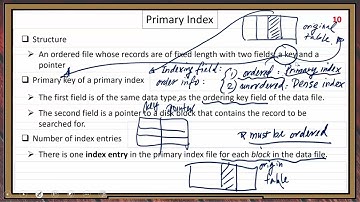 Primary Index
10
original
table
❑ Structure
➢ An ordered file whose records are of fixed length with two fields, a key and a
pointer
* Indexing field:
order info:
{ (1) ordered: Primary index
(2) unordered: Dense index
❑ Primary key of a primary index
➢ The first field is of the same data type as the ordering key field of the data file.
key pointer
➢ The second field is a pointer to a disk block that contains the record to be
searched for.
* must be ordered
❑ Number of index entries
➢ There is one index entry in the primary index file for each block in the data file.
origin
table